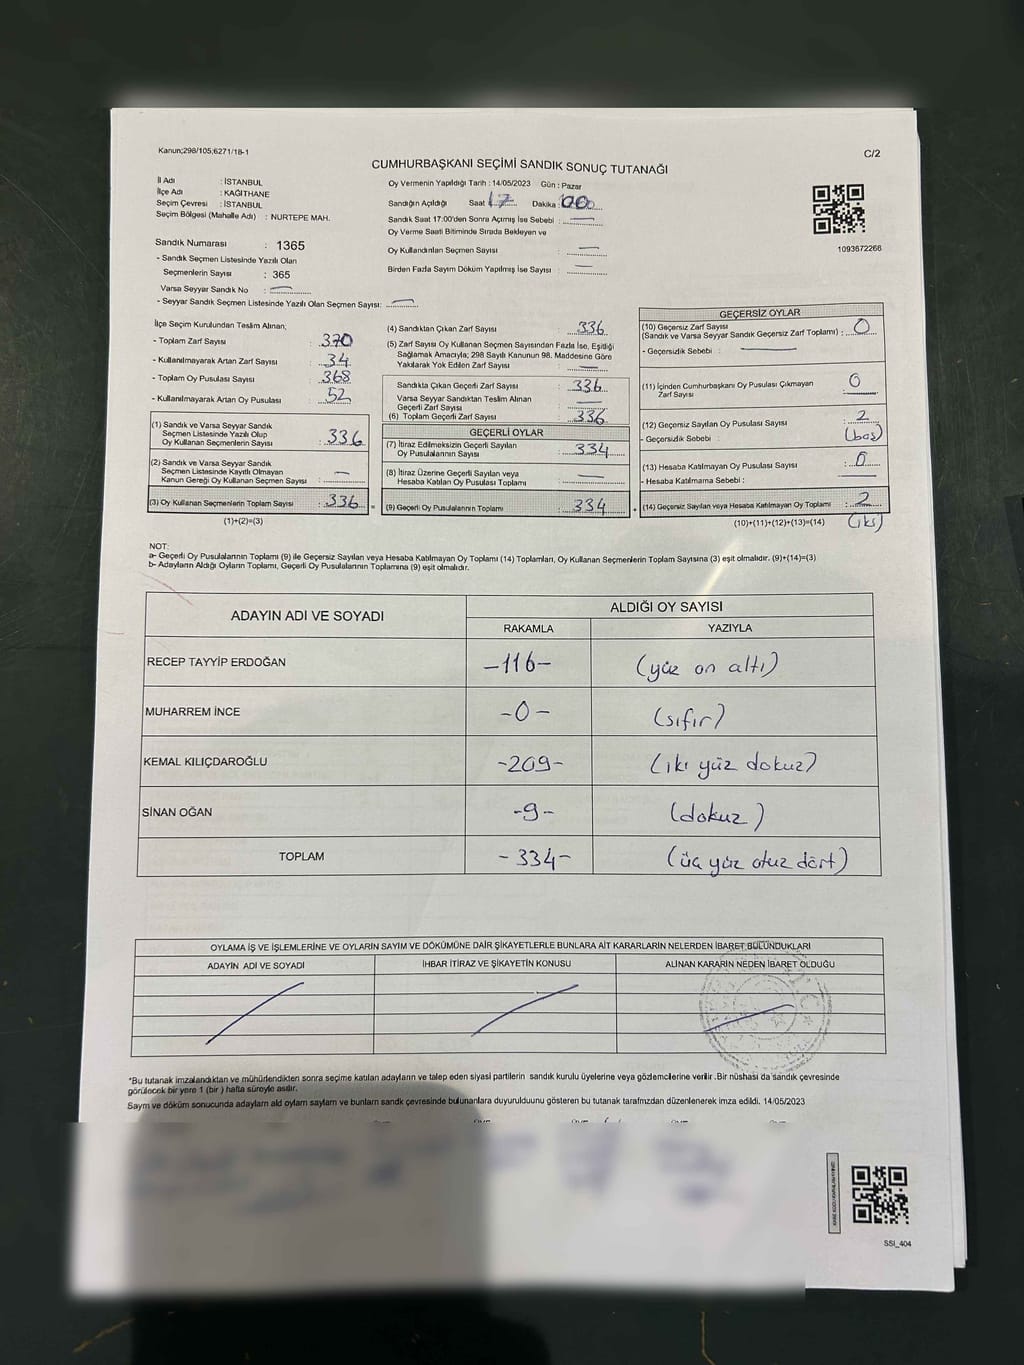 Kanun;298/105;6271/18-1
C/2
CUMHURBAŞKANI SEÇİMİ SANDIK SONUÇ TUTANAĞI
İl Adı : İSTANBUL
İlçe Adı : KAĞITHANE
Seçim Çevresi : İSTANBUL
Seçim Bölgesi (Mahalle Adı) : NURTEPE MAH.
Sandık Numarası : 1365
- Sandık Seçmen Listesinde Yazılı Olan
Seçmenlerin Sayısı : 365
Varsa Seyyar Sandık No : —
- Seyyar Sandık Seçmen Listesinde Yazılı Olan Seçmen Sayısı: —
Oy Vermenin Yapıldığı Tarih : 14/05/2023 Gün : Pazar
Sandığın Açıldığı Saat 17 Dakika : 00
Sandık Saat 17:00'den Sonra Açımış İse Sebebi : —
Oy Verme Saati Bitiminde Sırada Bekleyen ve
Oy Kullandırılan Seçmen Sayısı : —
Birden Fazla Sayım Döküm Yapılmış İse Sayısı : —
1093672266
İlçe Seçim Kurulundan Teslim Alınan;
- Toplam Zarf Sayısı : 370
- Kullanılmayarak Artan Zarf Sayısı : 34
- Toplam Oy Pusulası Sayısı : 368
- Kullanılmayarak Artan Oy Pusulası : 52
(1) Sandık ve Varsa Seyyar Sandık
Seçmen Listesinde Yazılı Olup
Oy Kullanan Seçmenlerin Sayısı : 336
(2) Sandık ve Varsa Seyyar Sandık
Seçmen Listesinde Kayıtlı Olmayan
Kanun Gereği Oy Kullanan Seçmen Sayısı : —
(3) Oy Kullanan Seçmenlerin Toplam Sayısı : 336
(1)+(2)=(3)
(4) Sandıktan Çıkan Zarf Sayısı : 336
(5) Zarf Sayısı Oy Kullanan Seçmen Sayısından Fazla İse, Eşitliği
Sağlamak Amacıyla; 298 Sayılı Kanunun 98. Maddesine Göre
Yakılarak Yok Edilen Zarf Sayısı : —
Sandıkta Çıkan Geçerli Zarf Sayısı : 336
Varsa Seyyar Sandıktan Teslim Alınan
Geçerli Zarf Sayısı : —
(6) Toplam Geçerli Zarf Sayısı : 336
GEÇERLİ OYLAR
(7) İtiraz Edilmeksizin Geçerli Sayılan
Oy Pusulalarının Sayısı : 334
(8) İtiraz Üzerine Geçerli Sayılan veya
Hesaba Katılan Oy Pusulası Toplamı : —
(9) Geçerli Oy Pusulalarının Toplamı : 334
GEÇERSİZ OYLAR
(10) Geçersiz Zarf Sayısı
(Sandık ve Varsa Seyyar Sandık Geçersiz Zarf Toplamı) : 0
- Geçersizlik Sebebi : —
(11) İçinden Cumhurbaşkanı Oy Pusulası Çıkmayan
Zarf Sayısı : 0
(12) Geçersiz Sayılan Oy Pusulası Sayısı : 2
- Geçersizlik Sebebi : (boş)
(13) Hesaba Katılmayan Oy Pusulası Sayısı : 0
- Hesaba Katılmama Sebebi :
(14) Geçersiz Sayılan veya Hesaba Katılmayan Oy Toplamı : 2
(10)+(11)+(12)+(13)=(14) (iki)
NOT:
a- Geçerli Oy Pusulalarının Toplamı (9) ile Geçersiz Sayılan veya Hesaba Katılmayan Oy Toplamı (14) Toplamları, Oy Kullanan Seçmenlerin Toplam Sayısına (3) eşit olmalıdır. (9)+(14)=(3)
b- Adayların Aldığı Oyların Toplamı, Geçerli Oy Pusulalarının Toplamına (9) eşit olmalıdır.
ADAYIN ADI VE SOYADI
ALDIĞI OY SAYISI
RAKAMLA YAZIYLA
RECEP TAYYİP ERDOĞAN -116- (yüz on altı)
MUHARREM İNCE -0- (sıfır)
KEMAL KILIÇDAROĞLU -209- (iki yüz dokuz)
SİNAN OĞAN -9- (dokuz)
TOPLAM -334- (üç yüz otuz dört)
OYLAMA İŞ VE İŞLEMLERİNE VE OYLARIN SAYIM VE DÖKÜMÜNE DAİR ŞİKAYETLERLE BUNLARA AİT KARARLARIN NELERDEN İBARET BULUNDUKLARI
ADAYIN ADI VE SOYADI İHBAR İTİRAZ VE ŞİKAYETİN KONUSU ALINAN KARARIN NEDEN İBARET OLDUĞU
*Bu tutanak imzalandıktan ve mühürlendikten sonra seçime katılan adayların ve talep eden siyasi partilerin sandık kurulu üyelerine veya gözlemcilerine verilir .Bir nüshası da sandık çevresinde
görülecek bir yere 1 (bir ) hafta süreyle asılır.
Sayım ve döküm sonucunda adayların ald oyların sayların ve bunların sandk çevresinde bulunanlara duyurulduunu gösteren bu tutanak tarafmzdan düzenlenerek imza edildi. 14/05/2023
SSI_404